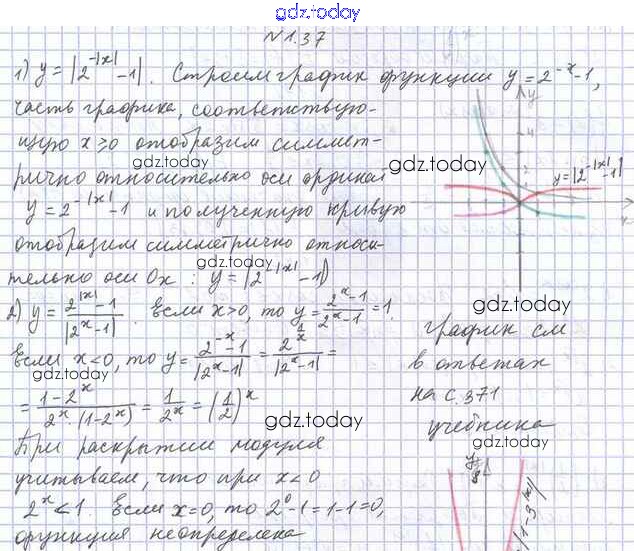 gdz.today
№1.37
1) y = |2^{-|x|} - 1|. Строим график функции y = 2^{-x} - 1,
часть графика, соответствую-
щую x ≥ 0 отобразим симмет-
gdz.today
рично относительно оси ординат
y = 2^{-|x|} - 1 и полученную кривую
отобразим симметрично относи-
gdz.today
тельно оси Ox : y = |2^{-|x|} - 1|
y
4
gdz.today
y = |2^{-|x|} - 1|
x
2) y = \frac{2^{|x|} - 1}{|2^x - 1|}. Если x > 0, то y = \frac{2^x - 1}{2^x - 1} = 1.
gdz.today
Если x < 0, то y = \frac{2^{-x} - 1}{|2^x - 1|} = =
gdz.today
= \frac{1 - 2^x}{2^x · (1 - 2^x)} = \frac{1}{2^x} = (\frac{1}{2})^x
gdz.today
При раскрытии модуля
учитываем, что при x < 0
2^x < 1. Если x = 0, то 2^0 - 1 = 1 - 1 = 0,
функция неопределена
график см
в ответах
gdz.today
на с. 371
учебника
gdz.today
y
8